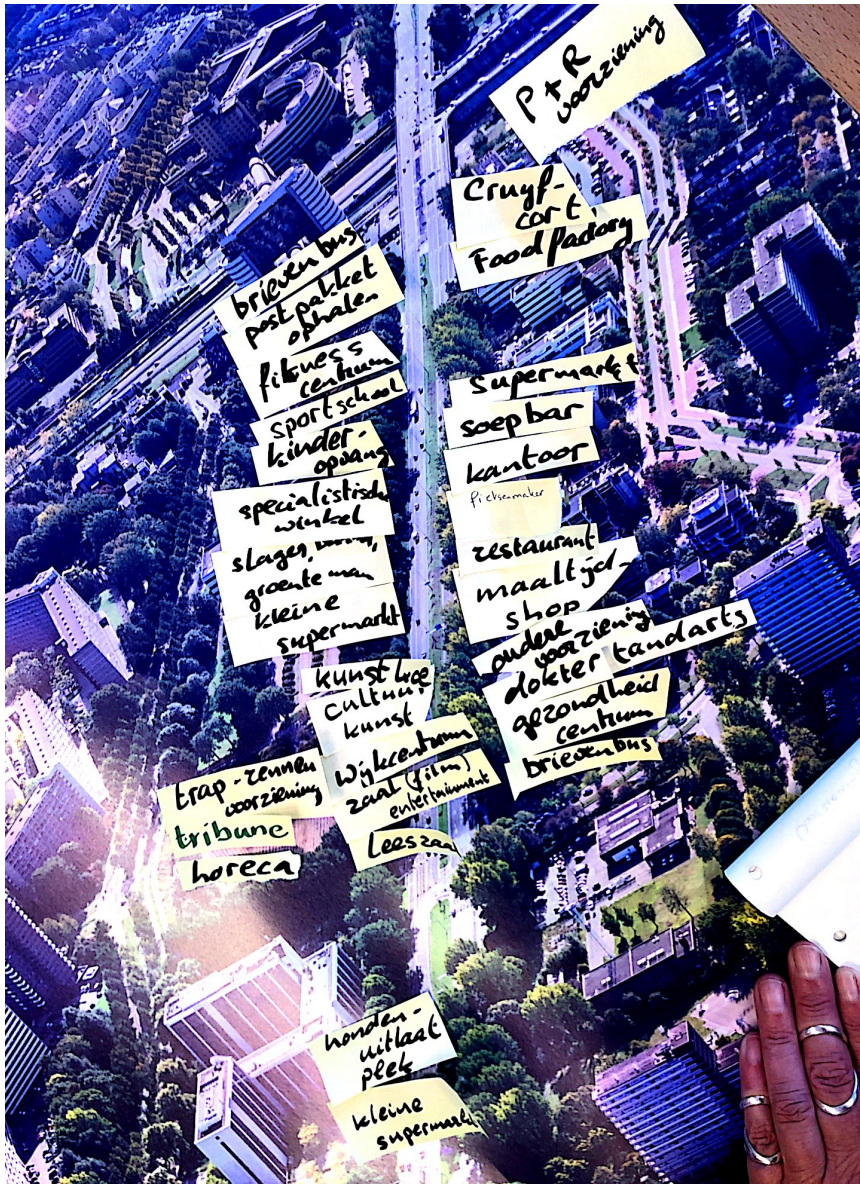 P + R
voorziening
Cruyf-
cort
Food factory
brievenbus
post pakket
ophalen
fitness
centrum
sportschool
kinder-
opvang
specialistisch
winkel
slager,
groenteman
kleine
supermarkt
supermarkt
soepbar
kantoor
fietsenmaker
restaurant
maaltijd-
shop
oudere
voorziening
dokter tandarts
gezondheid
centrum
brievenbus
kunst
cultuur
kunst
wijkcentrum
zaal (film)
entertainment
leeszaal
trap-rennen
voorziening
tribune
horeca
honden-
uitlaat
plek
kleine
supermarkt